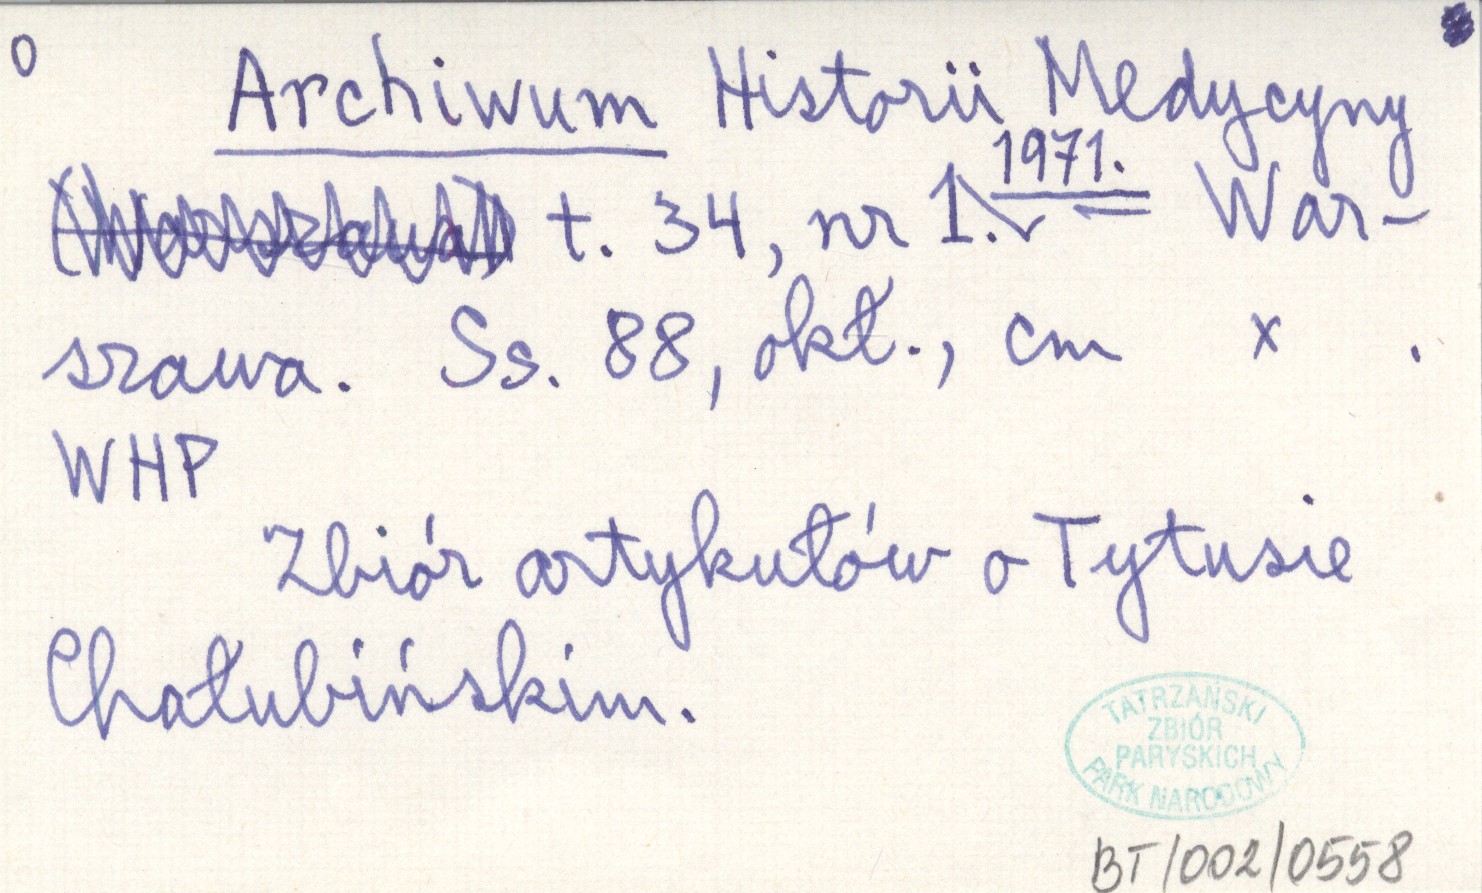 0
Archiwum Historii Medycyny
(Warszawa) t. 34, nr 1. 1971. War-
szawa. Ss. 88, okł., cm x .
WHP
Zbiór artykułów o Tytusie
Chałubińskim.
TATRZAŃSKI
ZBIÓR
PARYSKICH
PARK NARODOWY
BT/002/0558